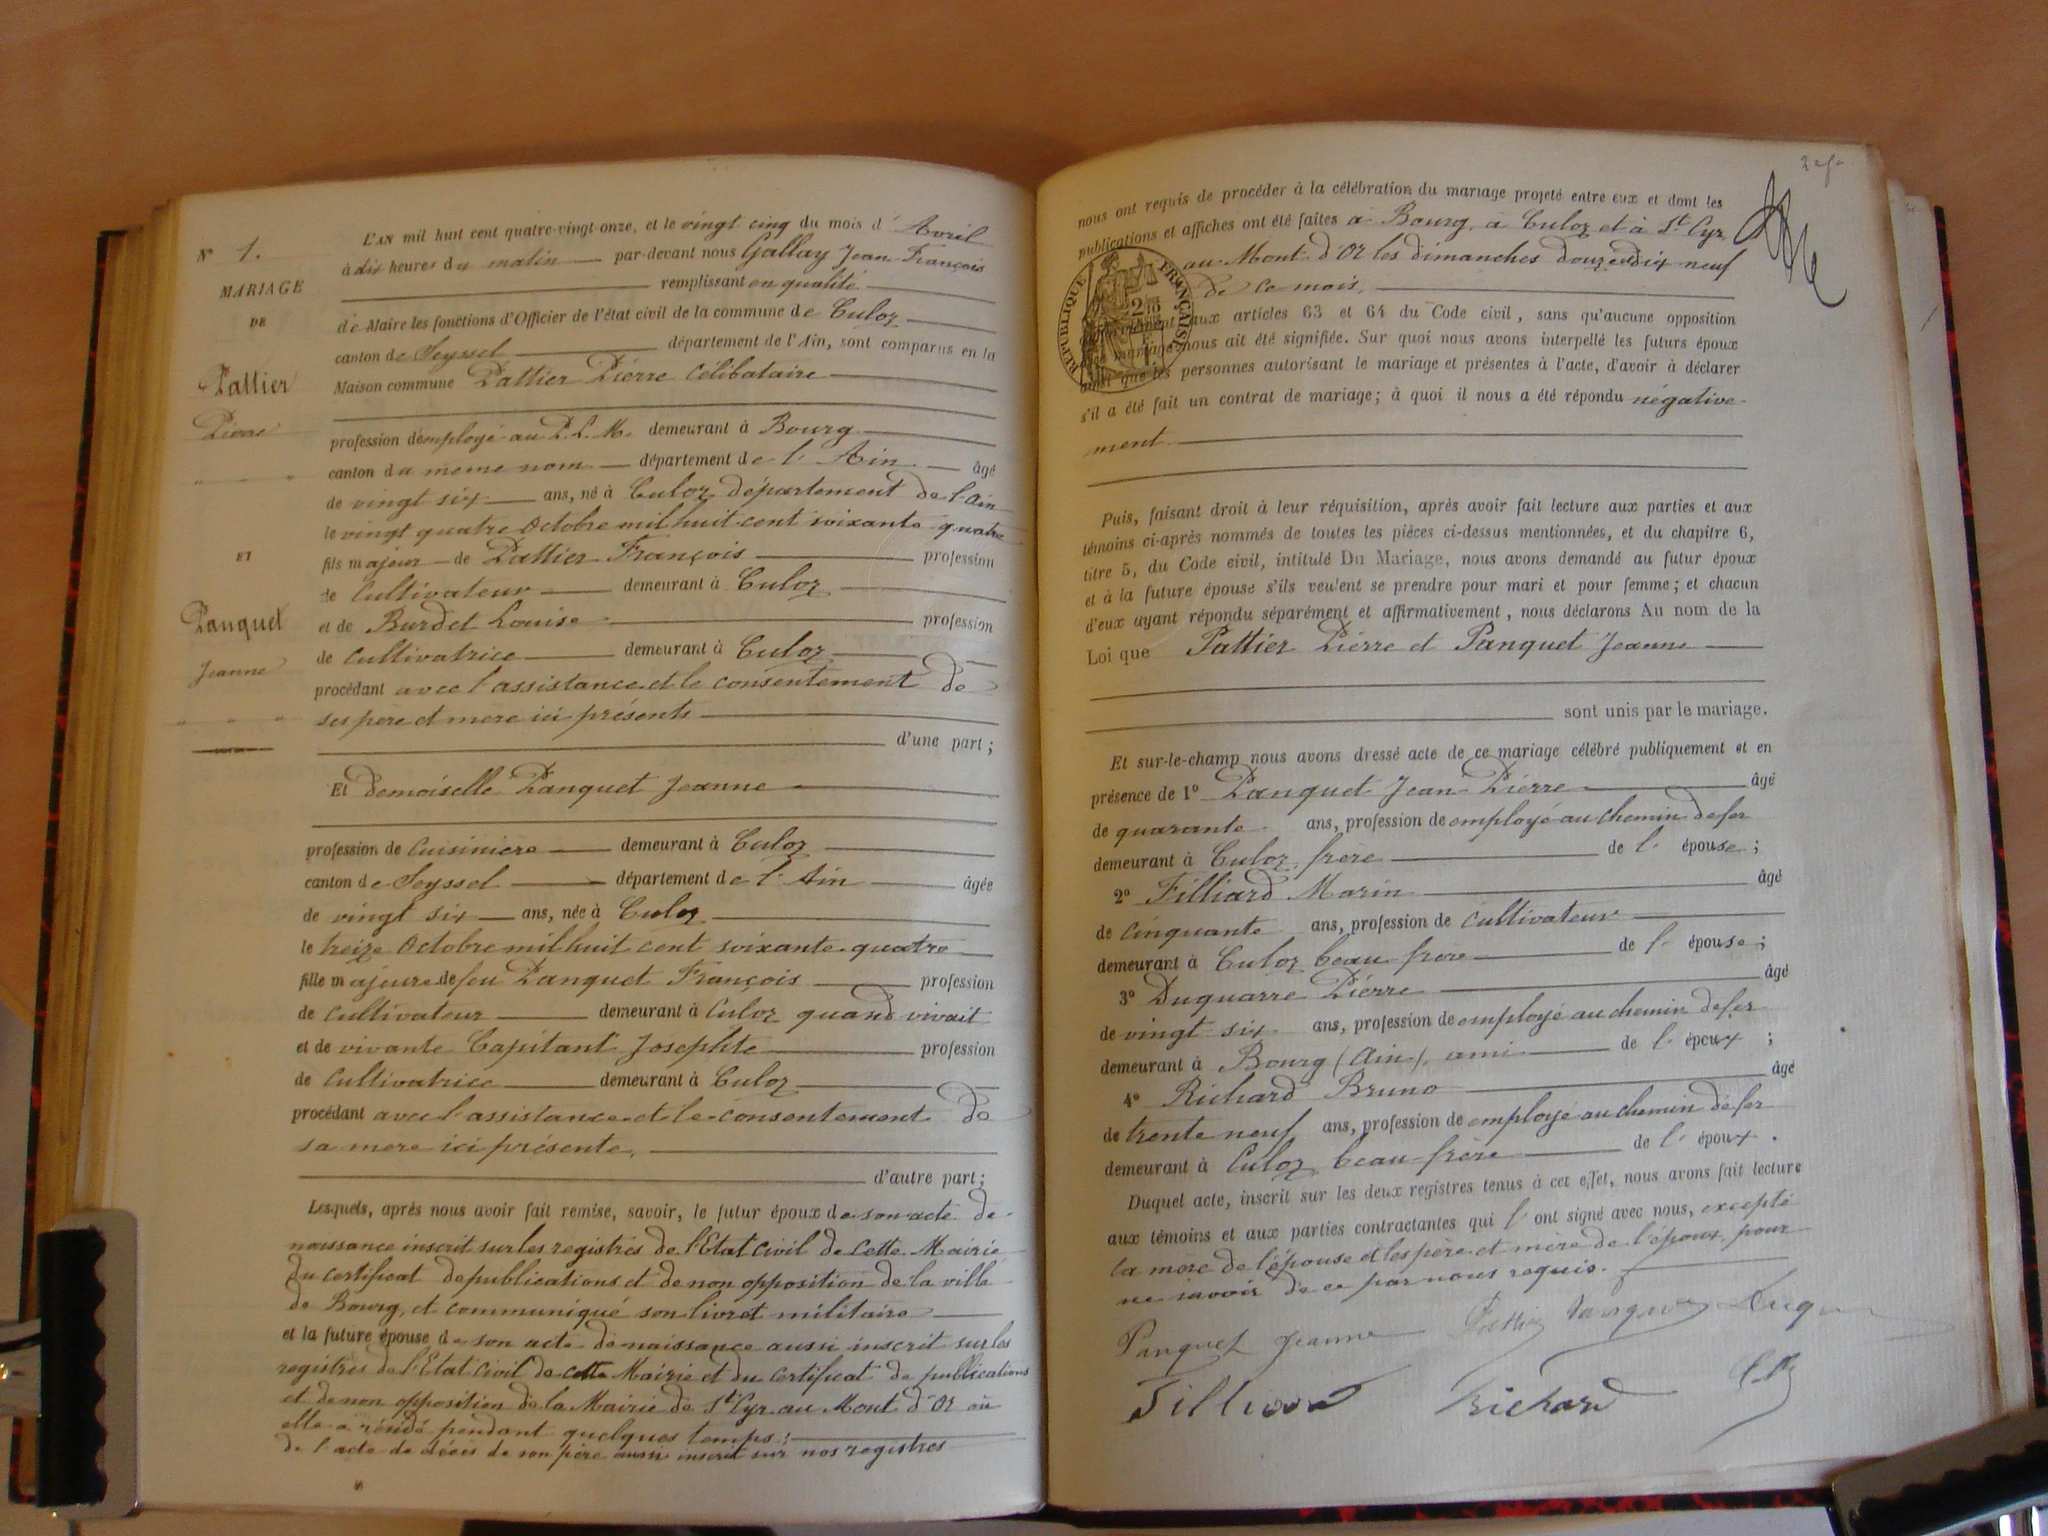 N° 1.
MARIAGE
DE
Pattier
Pierre
ET
Panquet
Jeanne
L'AN mil huit cent quatre-vingt-onze, et le vingt cinq du mois d' Avril
à dix heures du matin par-devant nous Gallay Jean François
remplissant en qualité
de Maire les fonctions d'Officier de l'état civil de la commune de Culoz
canton de Seyssel département de l'Ain, sont comparus en la
Maison commune Pattier Pierre célibataire
profession d'employé au P. L. M. demeurant à Bourg
canton du même nom département de l'Ain âgé
de vingt six ans, né à Culoz département de l'Ain
le vingt quatre Octobre mil huit cent soixante quatre
fils majeur de Pattier François profession
de Cultivateur demeurant à Culoz
et de Burdet Louise profession
de cultivatrice demeurant à Culoz
procédant avec l'assistance et le consentement de
ses père et mère ici présents
d'une part ;
Et Demoiselle Panquet Jeanne
profession de cuisinière demeurant à Culoz
canton de Seyssel département de l'Ain âgée
de vingt six ans, née à Culoz
le treize Octobre mil huit cent soixante quatre
fille majeure de feu Panquet François profession
de cultivateur demeurant à Culoz quand vivait
et de vivante Capitant Josephte profession
de cultivatrice demeurant à Culoz
procédant avec l'assistance et le consentement de
sa mère ici présente,
d'autre part ;
Lesquels, après nous avoir fait remise, savoir, le futur époux de son acte de
naissance inscrit sur les registres de l'Etat Civil de cette Mairie
du certificat de publications et de non opposition de la ville
de Bourg, et communiqué son livret militaire
et la future épouse de son acte de naissance aussi inscrit sur les
registres de l'Etat Civil de cette Mairie et du certificat de publications
et de non opposition de la Mairie de St Cyr au Mont d'Or où
elle a résidé pendant quelques temps ;
de l'acte de décès de son père aussi inscrit sur nos registres
nous ont requis de procéder à la célébration du mariage projeté entre eux et dont les
publications et affiches ont été faites à Bourg, à Culoz et à St Cyr
au Mont d'Or les dimanches douze et dix neuf
de ce mois,
RÉPUBLIQUE FRANÇAISE
aux articles 63 et 64 du Code civil, sans qu'aucune opposition
mariage nous ait été signifiée. Sur quoi nous avons interpellé les futurs époux
ainsi que les personnes autorisant le mariage et présentes à l'acte, d'avoir à déclarer
s'il a été fait un contrat de mariage ; à quoi il nous a été répondu négative-
ment
Puis, faisant droit à leur réquisition, après avoir fait lecture aux parties et aux
témoins ci-après nommés de toutes les pièces ci-dessus mentionnées, et du chapitre 6,
titre 5, du Code civil, intitulé Du Mariage, nous avons demandé au futur époux
et à la future épouse s'ils veulent se prendre pour mari et pour femme ; et chacun
d'eux ayant répondu séparément et affirmativement, nous déclarons Au nom de la
Loi que Pattier Pierre et Panquet Jeanne
sont unis par le mariage.
Et sur-le-champ nous avons dressé acte de ce mariage célébré publiquement et en
présence de 1° Panquet Jean Pierre âgé
de quarante ans, profession de employé au chemin de fer
demeurant à Culoz, frère de l' épouse ;
2° Filliard Marin âgé
de cinquante ans, profession de cultivateur
demeurant à Culoz beau frère de l' épouse ;
3° Duquarre Pierre âgé
de vingt six ans, profession de employé au chemin de fer
demeurant à Bourg (Ain), ami de l' époux ;
4° Richard Bruno âgé
de trente neuf ans, profession de employé au chemin de fer
demeurant à Culoz, beau-frère de l' époux.
Duquel acte, inscrit sur les deux registres tenus à cet effet, nous avons fait lecture
aux témoins et aux parties contractantes qui l' ont signé avec nous, excepté
la mère de l'épouse et les père et mère de l'époux pour
ne savoir de ce par nous requis.
Panquet Jeanne Pattier Panquet
Filliard Richard